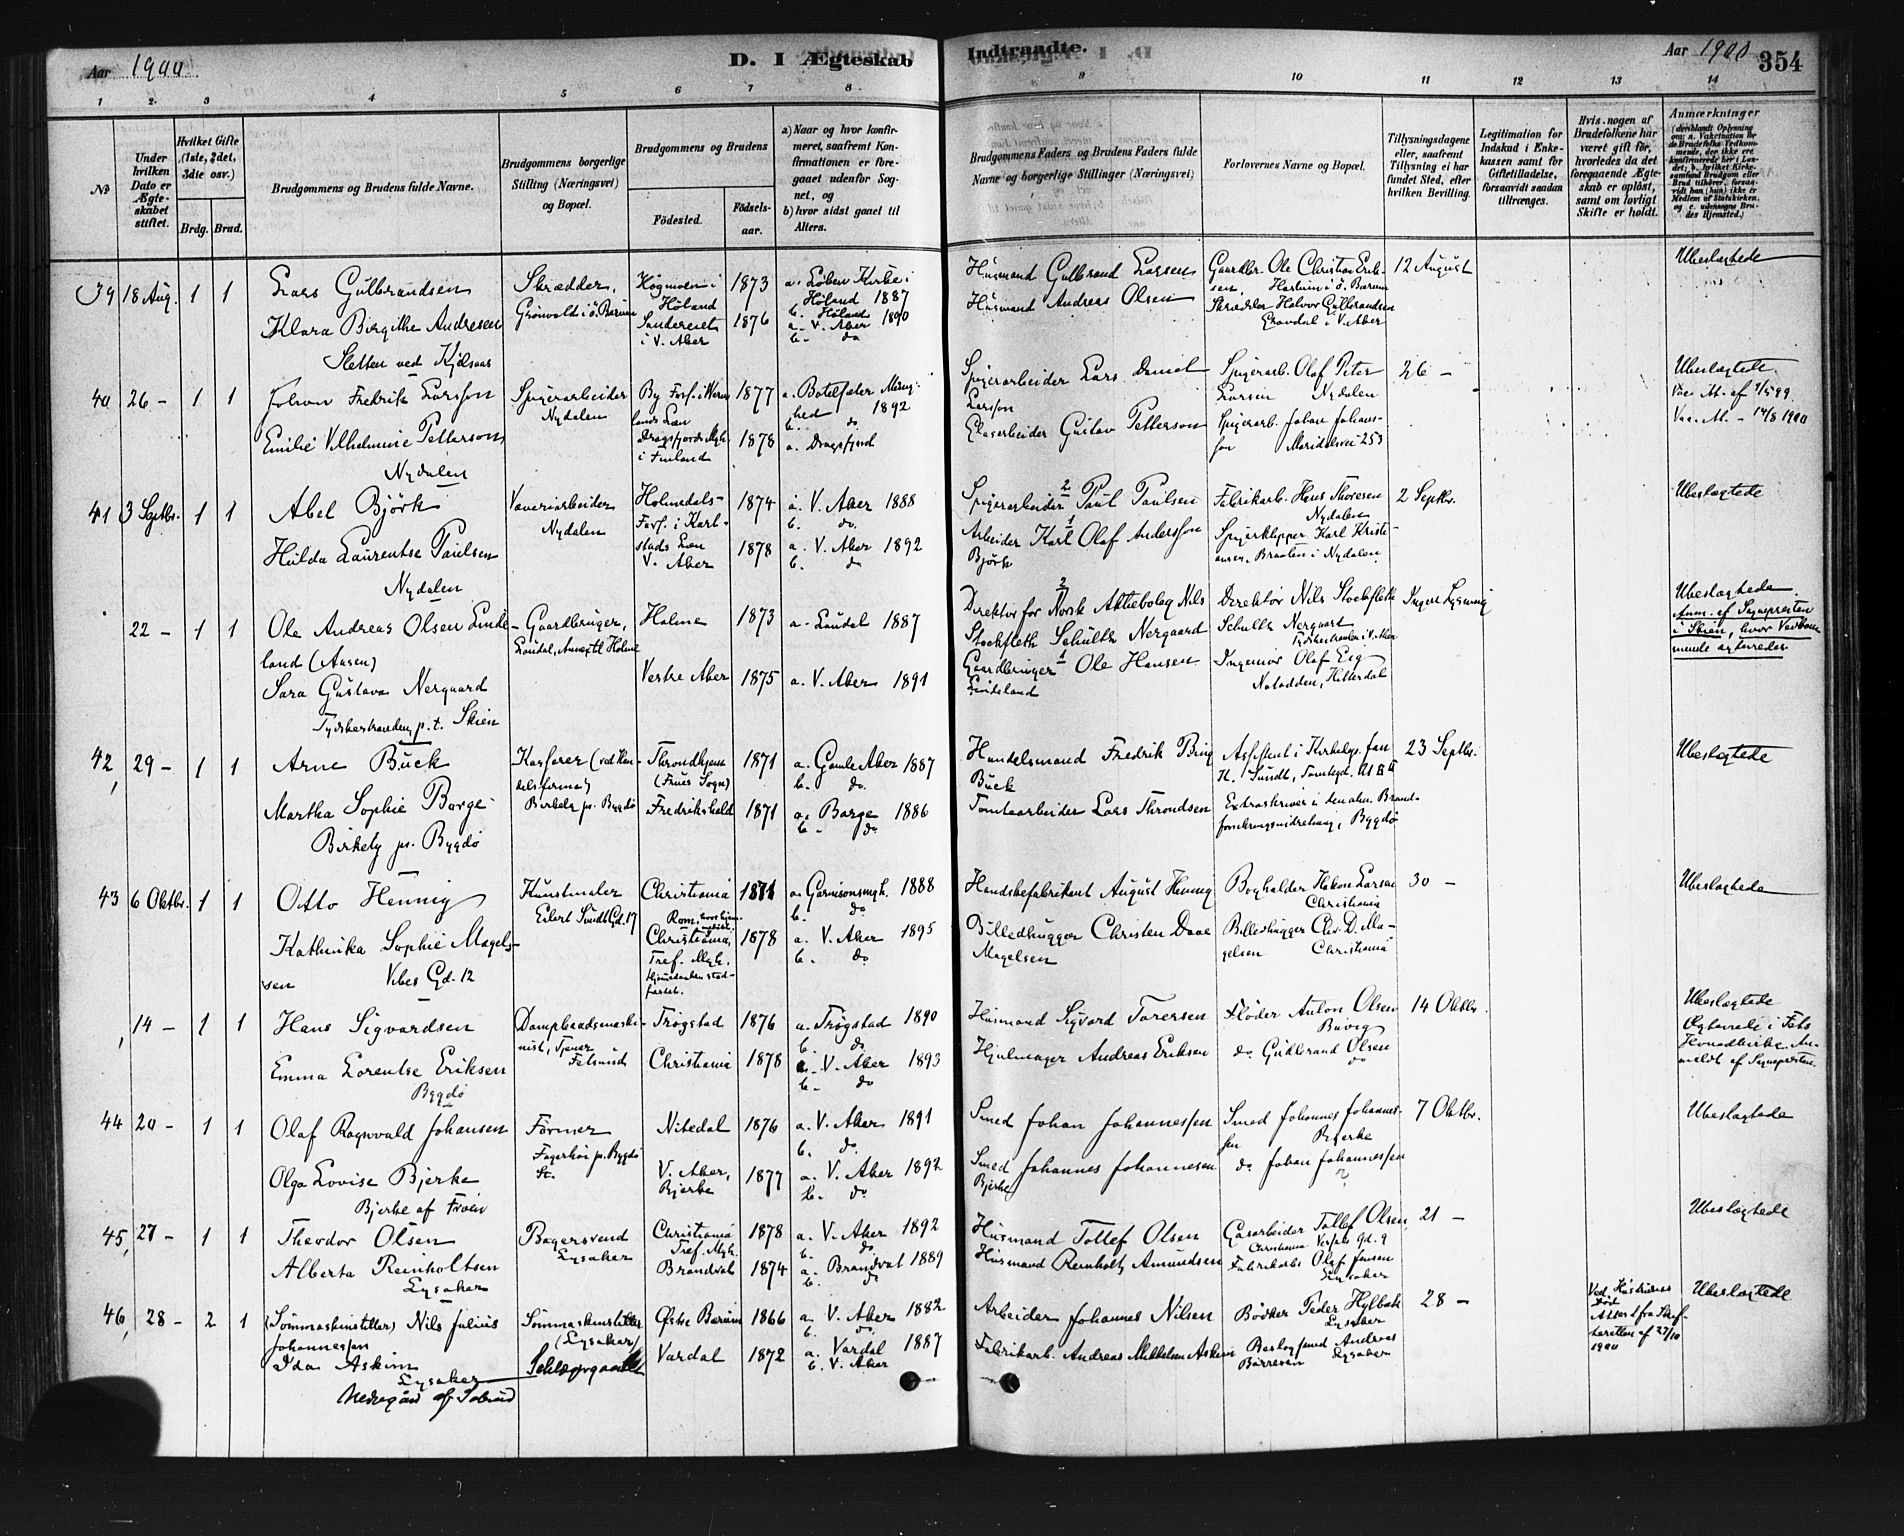 Aar 1900
D. I Ægteskab
Indtraadte.
Aar 1900
354
1 2 3 4 5 6 7 8 9 10 11 12 13 14
No
Under hvilken Dato er Ægteskabet stiftet.
Hvilket Gifte (1ste, 2det, 3die osv.)
Brdg. Brud.
Brudgommens og Brudens fulde Navne.
Brudgommens borgerlige Stilling (Næringsvei) og Bopæl.
Brudgommens og Brudens
Fødested.
Fødsels-aar.
a) Naar og hvor konfirmeret, saafremt Konfirmationen er foregaaet udenfor Sognet, og
b) hvor sidst gaaet til Alters.
Brudgommens Faders og Brudens Faders fulde Navne og borgerlige Stillinger (Næringsvei)
Forlovernes Navne og Bopæl.
Tillysningsdagene eller, saafremt Tillysning ei har fundet Sted, efter hvilken Bevilling.
Legitimation for Indskud i Enkekassen samt for Giftetilladelse, forsaavidt saadan tiltrænges.
Hvis nogen af Brudefolkene har været gift før, hvorledes da det foregaaende Ægteskab er opløst, samt om lovligt Skifte er holdt.
Anmærkninger
39 18 Aug. 1 1 Lars Gulbrandsen Skrædder, Høgmoen i Høland 1873 a. Løken Kirke i Høland 1887 b. Høland
Husmand Gulbrand Larsen Gaardbr. Ole Christian Eriksen, i Ø. Bærum 12 August Ubeslægtede
Klara Birgithe Andresen Grønvold i Ø. Bærum i V. Aker 1876 a. V. Aker 1890 b. do
Husmand Andreas Olsen Skrædder Halvor Gulbrandsen i V. Aker
Sletten ved Kjelsaas
40 26 - 1 1 Johan Fredrik Larsson Spigerarbeider Nydalen 1877 1892 b. do
Spigerarbeider Lars Daniel Larsson Spigerarb. Olaf Peter Larsen Nydalen 26 - Ubeslægtede
Emilie Vilhelmine Petterson Dragsfjords i Finland 1878 a. Dragsfjord
Gustav Petterson Spigerarb. Johan Johansson Maridalsvei 253 Vac. At. - 14/8 1900
Nydalen
41 3 Septbr. 1 1 Abel Björk Væveriarbeider Nydalen Holmedals Fors. i Karlstads Læn 1874 a. V. Aker 1888 b. do
Spigerarbeider Paul Paulsen Fabrikarb. Hans Thoresen Nydalen 2 Septbr. Ubeslægtede
Hulda Laurentse Paulsen V. Aker 1878 a. V. Aker 1892 b. do
Arbeider Karl Olaf Andersson Björk Spigerklipper Karl Kristiansen, Braaten i Nydalen
Nydalen
22 - 1 1 Ole Andreas Olsen Lindeland (Aasen) Gaardbruger, Laudal, Annex til Holme Holme 1873 a. Laudal 1887
Direktør for Norsk Aktiebolag Nils Stockfleth Schultz Nergaard Direktør Nils Stockfleth Schultz Nergaard Ingen Lysning Ubeslægtede
Anm. af Sognepresten i Skien, hvor Vedkommende ægteviedes
Sara Gustava Nergaard Vestre Aker 1875 a. V. Aker 1891
Gaardbruger Ole Hansen Lindeland Ingeniør Olaf Notodden, Hitterdal
Tyskestranden, p.t. Skien
42, 29 - 1 1 Arne Buck Kasserer (ved Handelsfirma) Birkely pr. Bygdø Throndhjem (Frues Sogn) 1871 a. Gamle Aker 1887 b. do
Handelsmand Fredrik Bing Buck Assistent i 23 Septbr. Ubeslægtede
Martha Sophie Borge Fredrikshald 1871 a. Borge 1886 b. do
Tomtearbeider Lars Throndsen Extraskriver i den alm. Brandforsikringsindretning, Bygdø
Birkely pr. Bygdø
43 6 Oktbr. 1 1 Otto Hennig Kunstmaler Eilert Sundts Gd. 17 Christiania 1871 a. Garnisonsmgh. 1888 b. do
Handskefabrikant August Hennig Bogholder Håkon Larsen Christiania 30 - Ubeslægtede
Kathinka Sophie Magelssen Rom, Christiania, Tref. Mgh. 1878 a. V. Aker 1895 b. do
Billedhugger Christen Daae Magelsen Billedhugger Chr. D. Magelsen Christiania
Vibes Gd. 12
14 - 1 1 Hans Sigvardsen Dampbaadsmaskinist, Fetsund Trøgstad 1876 a. Trøgstad 1890 b. do
Husmand Sigvard Torersen Fløder Anton Olsen 14 Oktbr. Ubeslægtede
Ægteviede i Fets Hovedkirke. Anmeldt af Sognepresten
Emma Lorentse Eriksen Christiania 1878 a. V. Aker 1893 b. do
Hjulmager Andreas Eriksen do. Gulbrand Olsen do
Bygdø
44 20 - 1 1 Olaf Ragnvald Johansen Former Fagerhøi pr. Bygdø St. Nitedal 1876 a. V. Aker 1891 b. do
Smed Johan Johannessen Smed Johannes Johannessen Bjerke 7 Oktbr. Ubeslægtede
Olga Lovise Bjerke V. Aker, Bjerke 1877 a. V. Aker 1892 b. do
Smed Johannes Johannesen Bjerke do. Johan Johannessen
Bjerke af Frøen
45, 27 - 1 1 Theodor Olsen Bagersvend Lysaker Christiania Tref. Mgh. 1878 a. V. Aker 1892 b. do
Husmand Tollef Olsen Gasarbeider Tollef Olsen Christiania 21 - Ubeslægtede
Alberta Reinholtsen Brandval 1874 a. Brandval 1889 b. do
Husmand Reinholt Amundsen Fabrikarb. Olaf Jensen Lysaker
Lysaker
46, 28 - 2 1 (Sømmaskinstiller) Nils Julius Johannessen Sømmaskinstiller (Lysaker) Østre Bærum 1866 a. V. Aker 1882 b. do
Arbeider Johannes Nilsen Bødker Peder Hylbak Lysaker 28 - Ved Hustruens Død Attest fra Skifteretten af 27/10 1900 Ubeslægtede
Ida Askim Vardal 1872 a. Vardal 1887 b. V. Aker
Fabrikarb. Andreas Mikkelsen Askim Andreas Lysaker
Lysaker